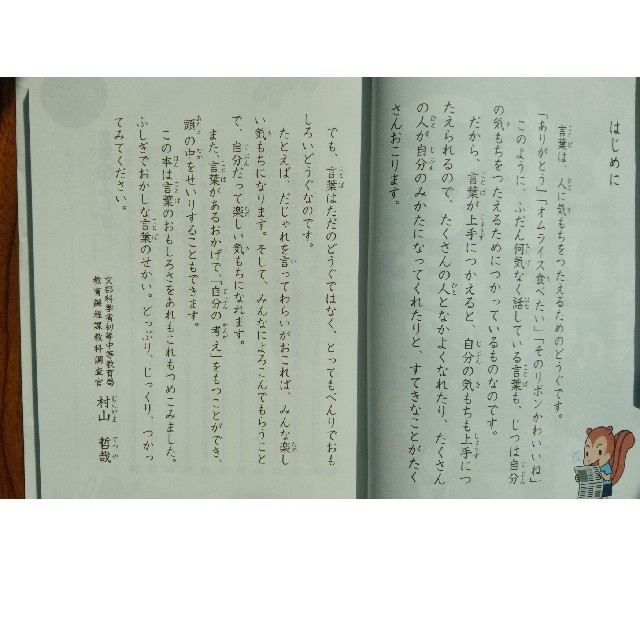 はじめに
言葉は、人に気もちをつたえるためのどうぐです。
「ありがとう」「オムライス食べたい」「そのリボンかわいいね」
このように、ふだん何気なく話している言葉も、じつは自分
の気もちをつたえるためにつかっているものなのです。
だから、言葉が上手につかえると、自分の気もちも上手につ
たえられるので、たくさんの人となかよくなれたり、たくさん
の人が自分のみかたになってくれたりと、すてきなことがたく
さんおこります。
でも、言葉はただのどうぐではなく、とってもべんりでおも
しろいどうぐなのです。
たとえば、だじゃれを言ってわらいがおこれば、みんな楽し
い気もちになります。そして、みんなによろこんでもらうこと
で、自分だって楽しい気もちになれます。
また、言葉があるおかげで、「自分の考え」をもつことができ、
頭の中をせいりすることもできます。
この本は言葉のおもしろさをあれもこれもつめこみました。
ふしぎでおかしな言葉のせかい。どっぷり、じっくり、つかっ
てみてください。
文部科学省初等中等教育局
教育課程課教科調査官 村山 哲哉